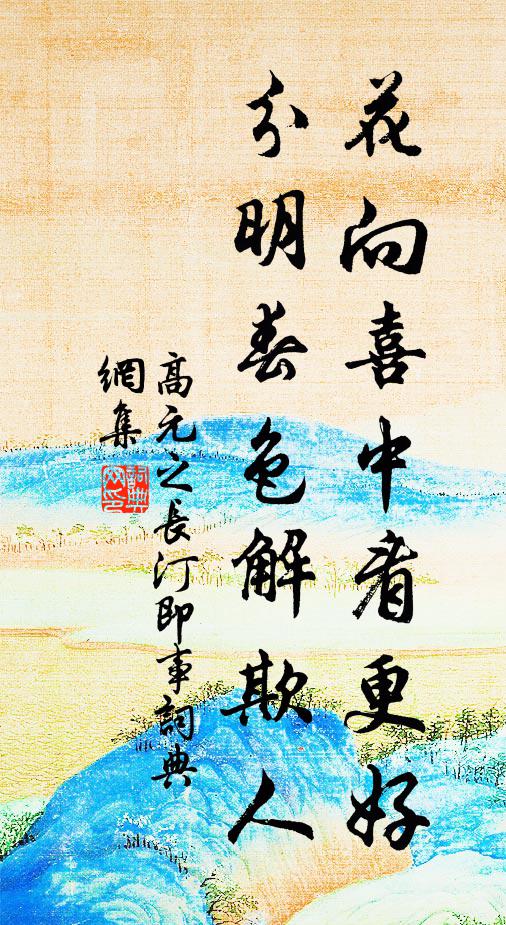 花向喜中看更好
分明春色解欺人
高元之長汀即事詞典
網集